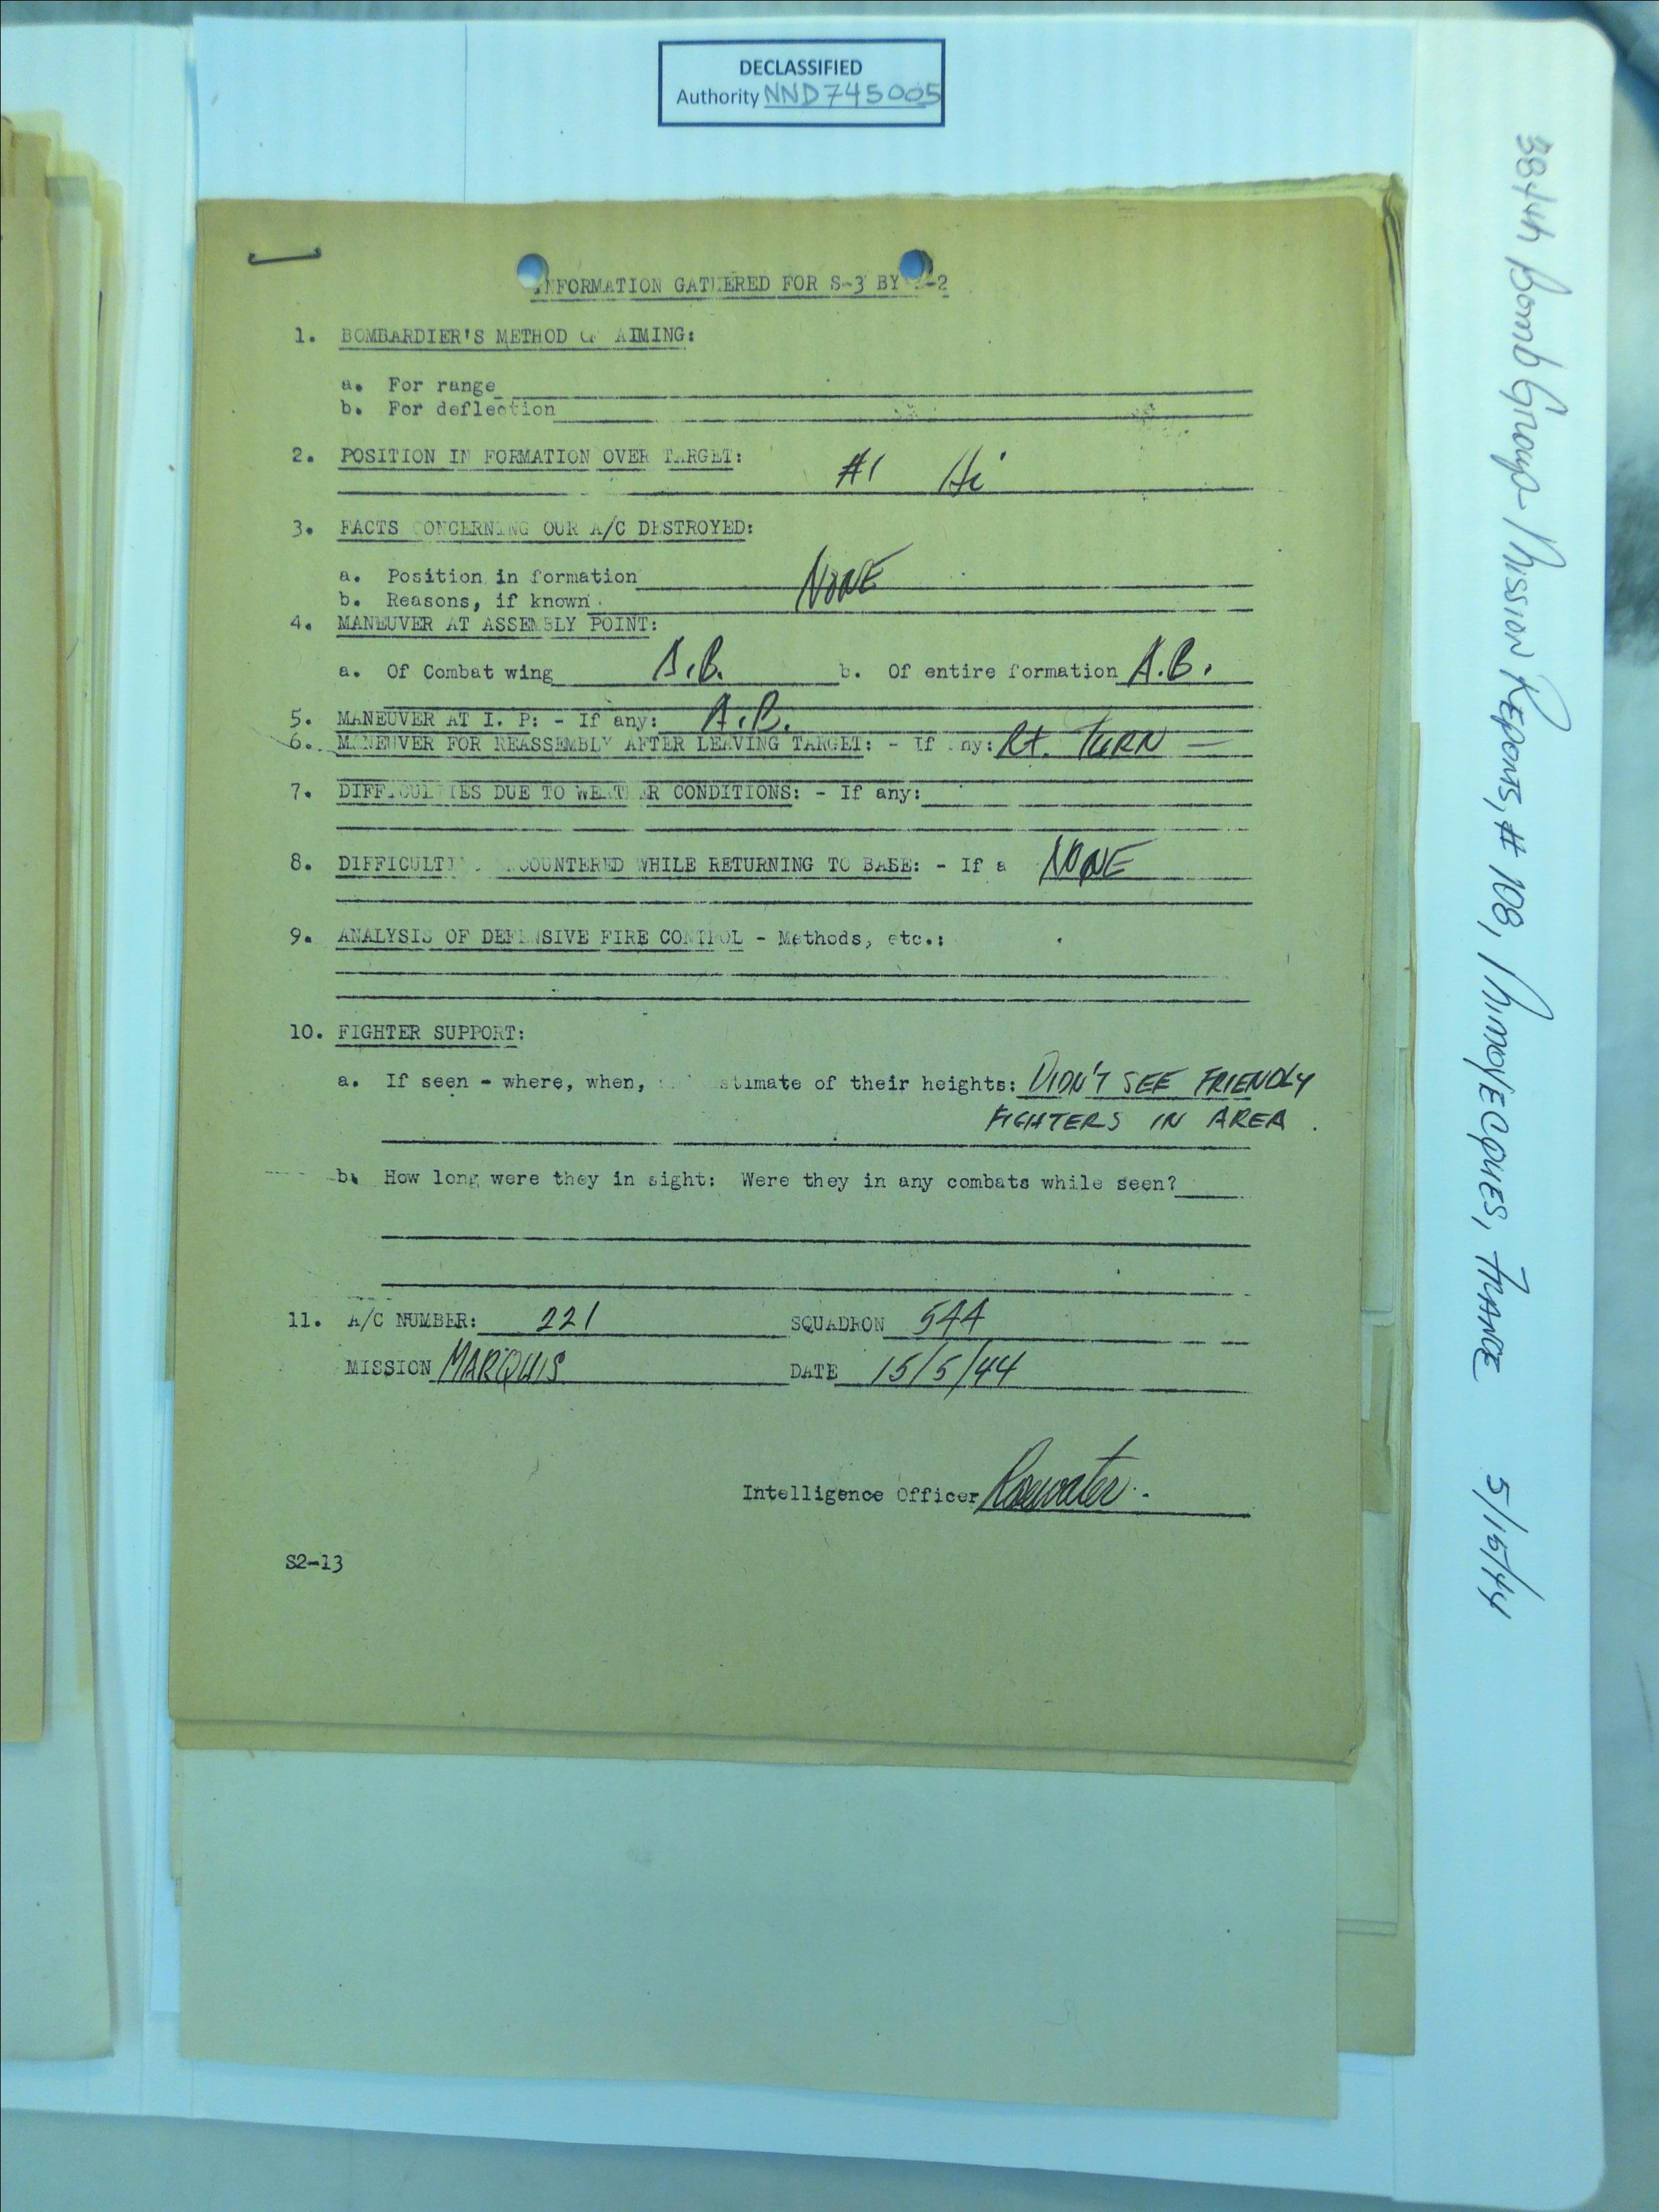 DECLASSIFIED
Authority NND745005
INFORMATION GATHERED FOR S-3 BY -2
1. BOMBARDIER'S METHOD OF AIMING:
a. For range
b. For deflection
2. POSITION IN FORMATION OVER TARGET:
#1 Hi
3. FACTS CONCERNING OUR A/C DESTROYED:
a. Position in formation
NONE
b. Reasons, if known
4. MANEUVER AT ASSEMBLY POINT:
a. Of Combat wing A.B. b. Of entire formation A.B.
5. MANEUVER AT I. P: - If any: A.B.
6. MANEUVER FOR REASSEMBLY AFTER LEAVING TARGET: - If any: Rt. TURN —
7. DIFFICULTIES DUE TO WEATHER CONDITIONS: - If any:
8. DIFFICULTI COUNTERED WHILE RETURNING TO BASE: - If a NONE
9. ANALYSIS OF DEFENSIVE FIRE CONTROL - Methods, etc.:
10. FIGHTER SUPPORT:
a. If seen - where, when, stimate of their heights: DIDN'T SEE FRIENDLY
FIGHTERS IN AREA.
b. How long were they in sight: Were they in any combats while seen?
11. A/C NUMBER: 221 SQUADRON 544
MISSION MARQUIS DATE 15/5/44
Intelligence Officer Rosewater
S2-13
384th Bomb Group - Mission Reports, # 108, MimoyECQUES, FRANCE 5/15/44